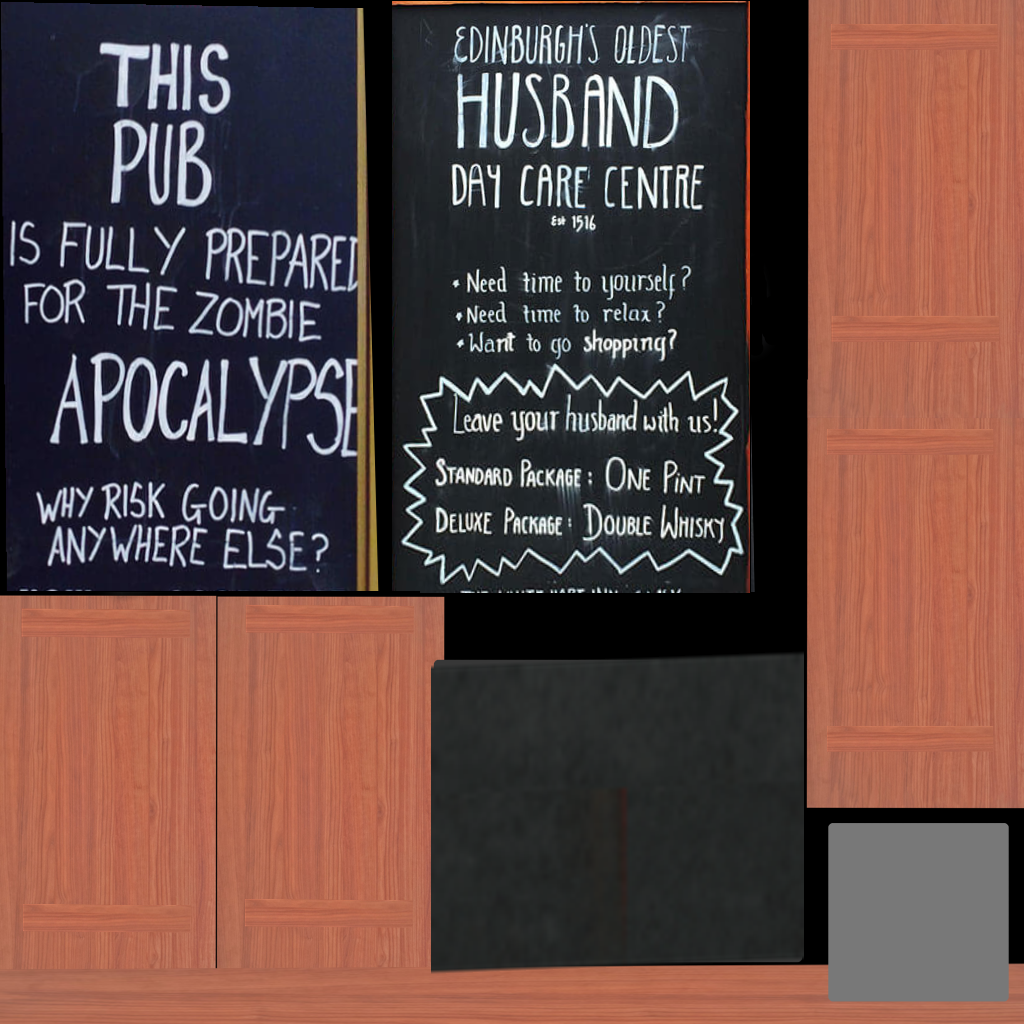 THIS
PUB
IS FULLY PREPARED
FOR THE ZOMBIE
APOCALYPSE
WHY RISK GOING
ANYWHERE ELSE?
EDINBURGH'S OLDEST
HUSBAND
DAY CARE CENTRE
Est 1516
• Need time to yourself?
• Need time to relax?
• Want to go shopping?
Leave your husband with us!
STANDARD PACKAGE: ONE PINT
DELUXE PACKAGE: DOUBLE WHISKY